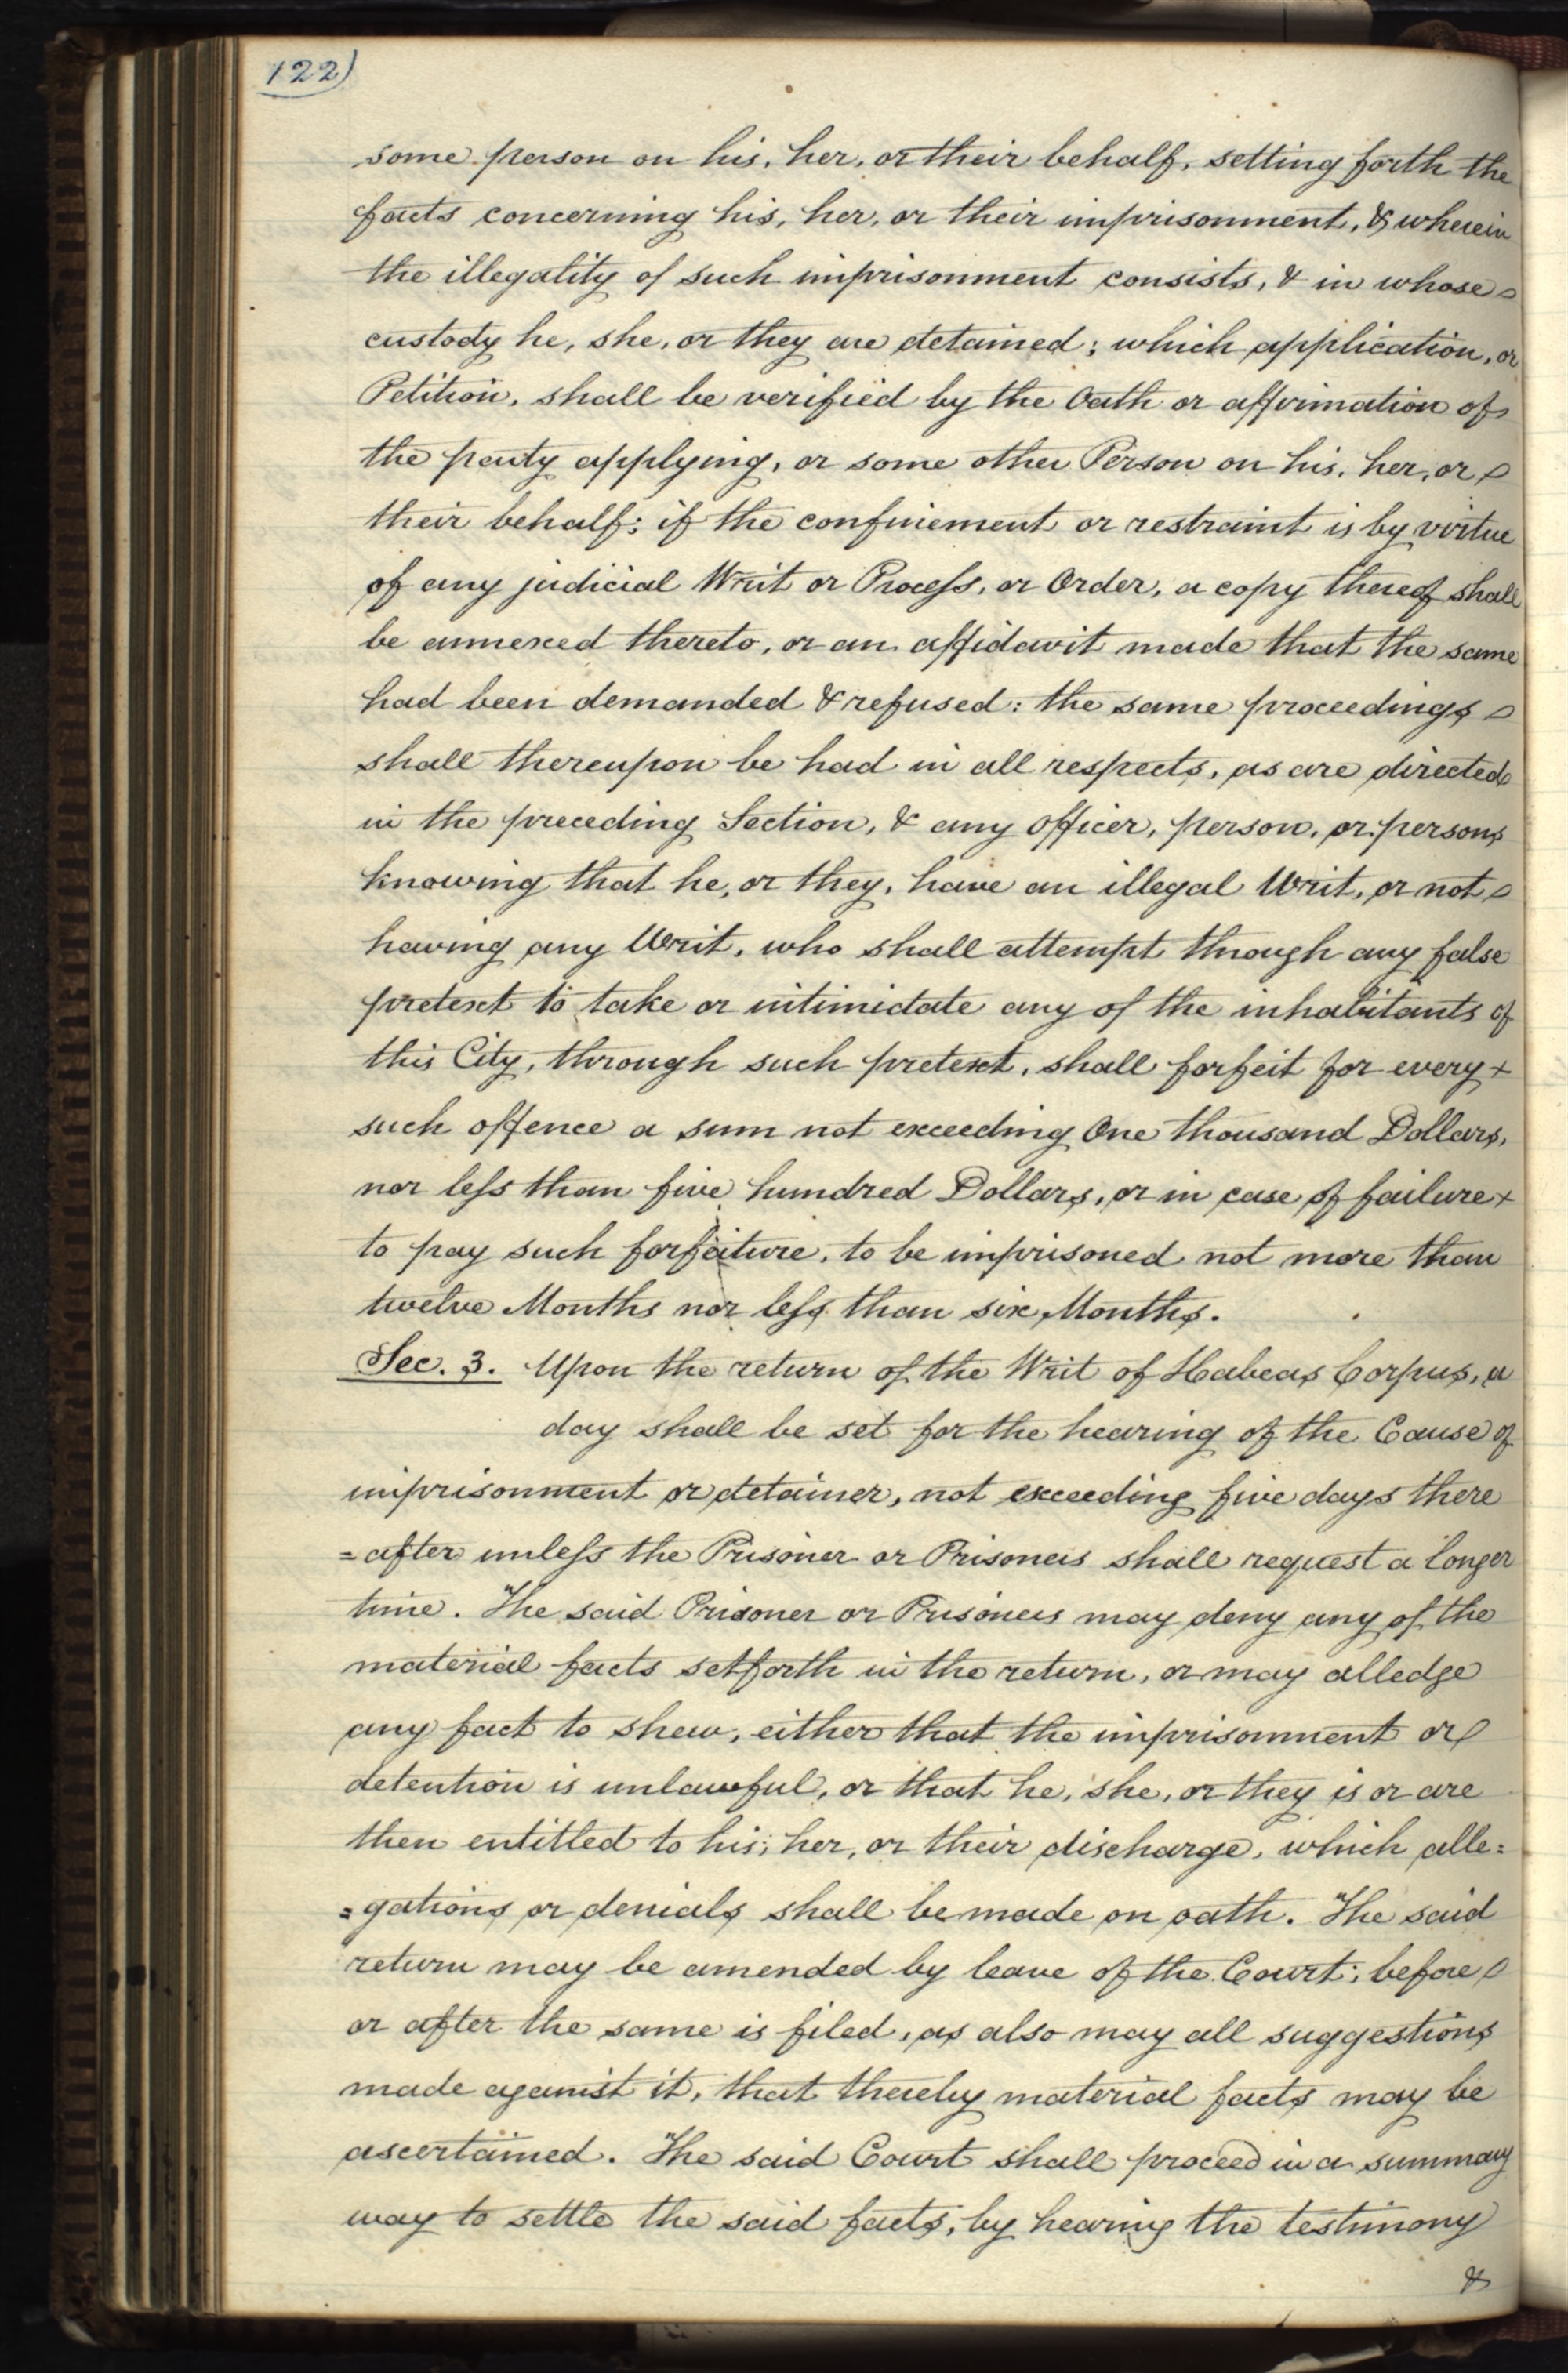 122)
some person on his, her, or their behalf, setting forth the
facts concerning his, her, or their imprisonment, & wherein
the illegality of such imprisonment consists, & in whose
custody he, she, or they are detained; which application, or
Petition, shall be verified by the Oath or affirmation of
the party applying, or some other Person on his, her, or
their behalf; if the confinement or restraint is by virtue
of any judicial Writ or Process, or Order, a copy thereof shall
be annexed thereto, or an affidavit made that the same
had been demanded & refused: the same proceedings
shall thereupon be had in all respects, as are directed
in the preceding Section, & any officer, person, or persons
knowing that he, or they, have an illegal Writ, or not
having any Writ, who shall attempt through any false
pretext to take or intimidate any of the inhabitants of
this City, through such pretext, shall forfeit for every
such offence a sum not exceeding One thousand Dollars,
nor less than five hundred Dollars, or in case of failure
to pay such forfeiture, to be imprisoned not more than
twelve Months nor less than six Months.
Sec. 3. Upon the return of the Writ of Habeas Corpus, a
day shall be set for the hearing of the Cause of
imprisonment or detainer, not exceeding five days there
=after unless the Prisoner or Prisoners shall request a longer
time. The said Prisoner or Prisoners may deny any of the
material facts set forth in the return, or may alledge
any fact to shew, either that the imprisonment or
detention is unlawful, or that he, she, or they is or are
then entitled to his, her, or their discharge, which alle=
=gations or denials shall be made on oath. The said
return may be amended by leave of the Court, before
or after the same is filed, as also may all suggestions
made against it, that thereby material facts may be
ascertained. The said Court shall proceed in a summary
way to settle the said facts, by hearing the testimony
&